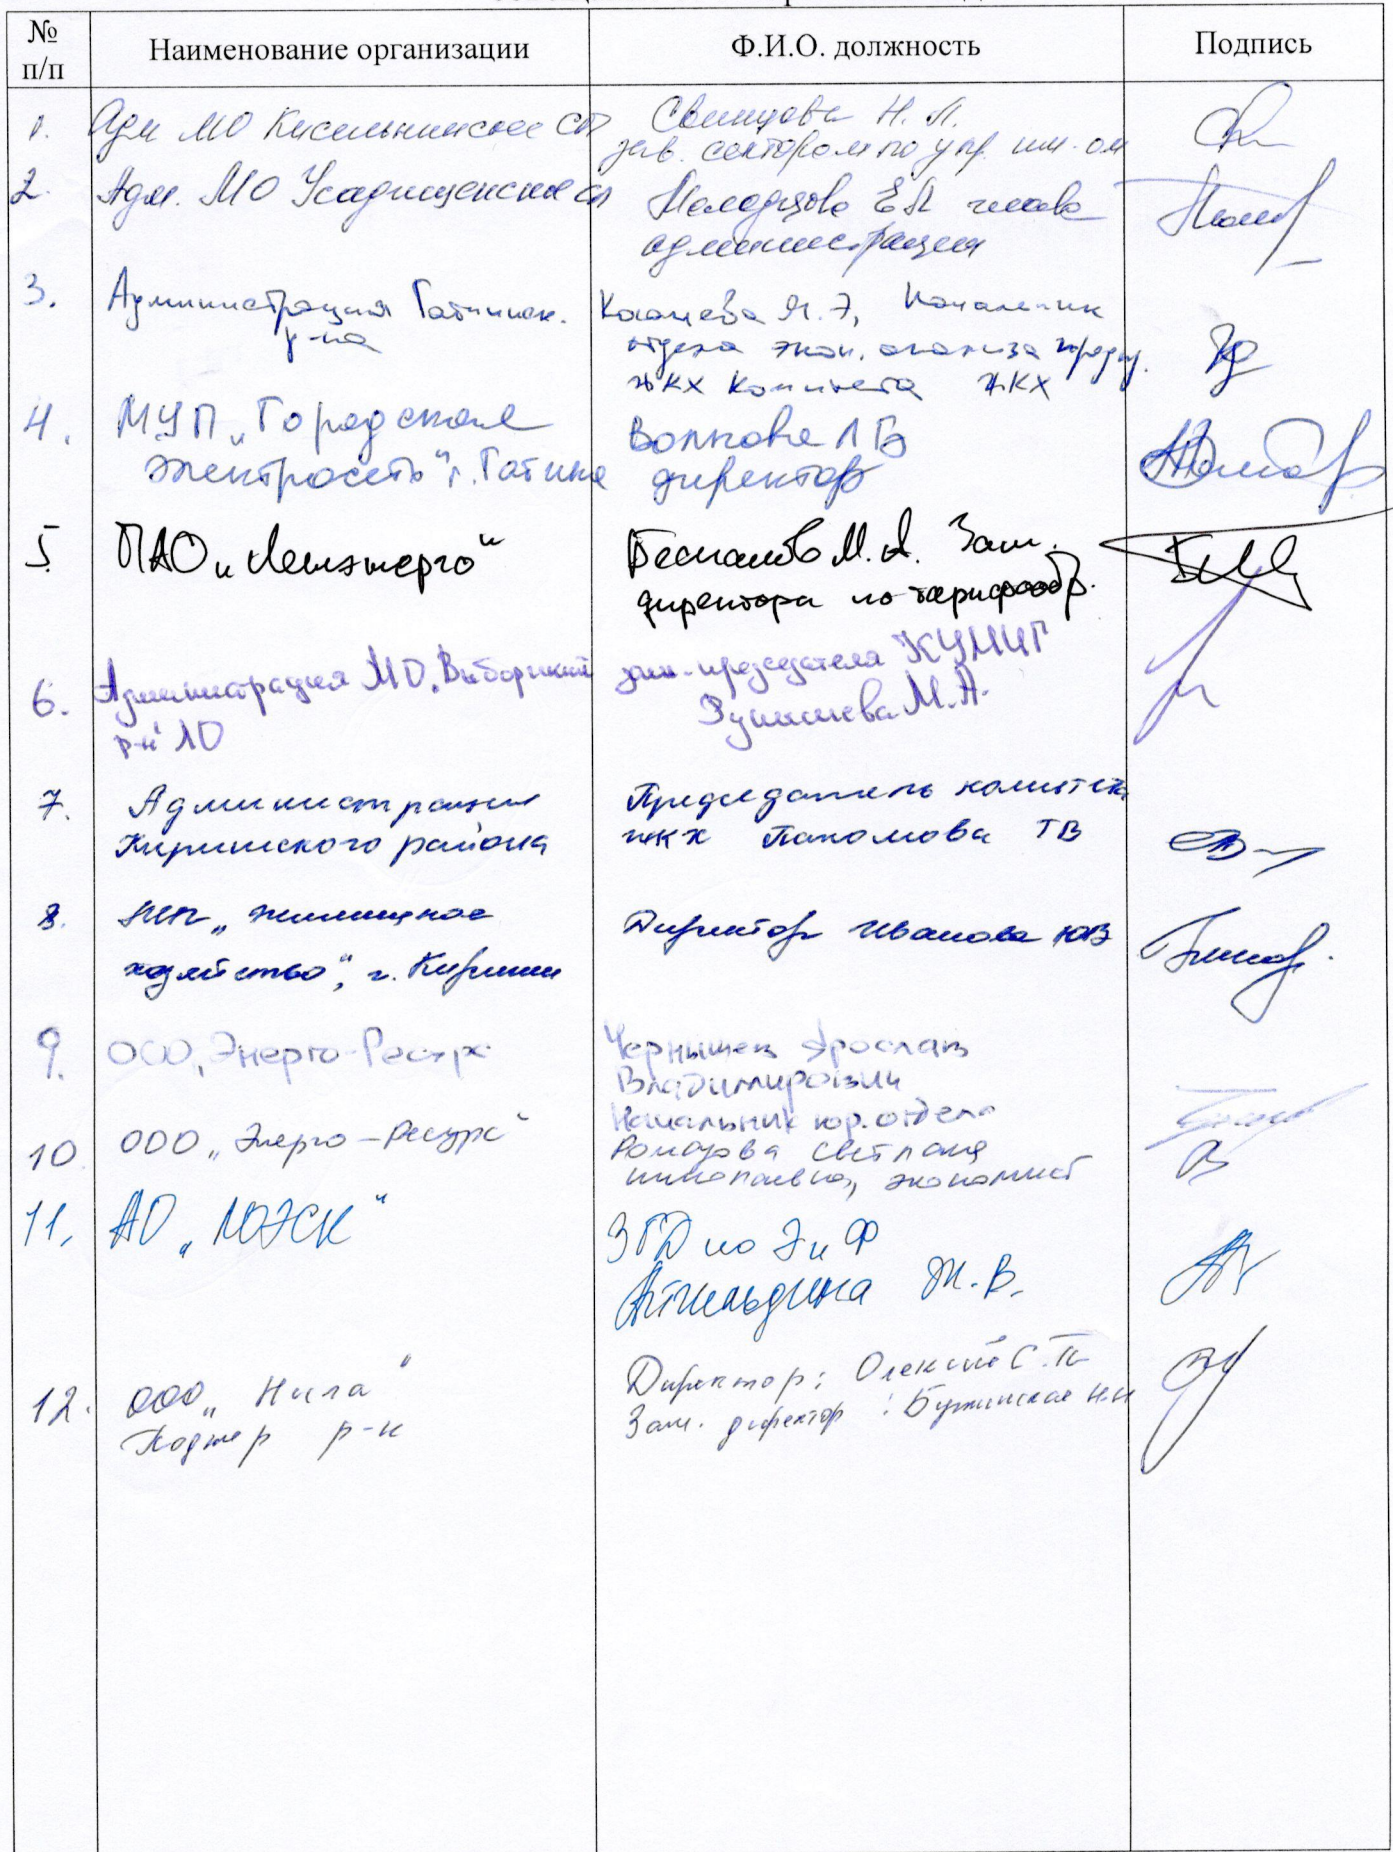 № п/п
Наименование организации
Ф.И.О. должность
Подпись
1. Адм МО Кисельнинское СП
Свинцова Н. П.
зав. сектором по упр. им-ом
2. Адм. МО Усадищенское СП
Молодцова ЕЛ глава
администрации
3. Администрация Гатчинск.
р-на
Я.Э, Начальник
отдела экон. анализа
ЖКХ Комитета ЖКХ
4. МУП „Городская
электросеть" г. Гатчина
Волкова ЛГ
директор
5. ПАО „Ленэнерго"
Беспалов М. А. Зам.
директора по тарифообр.
6. Администрация МО „Выборгский
р-н" ЛО
зам. председателя КУМИГ
М.А.
7. Администрация
Киришского района
Председатель комитета
ЖКХ Пахомова ТВ
8. МП „Жилищное
хозяйство", г. Кириши
Директор Иванова ЮВ
9. ООО „Энерго-Ресурс
Чернышев Ярослав
Владимирович
Начальник юр. отдела
10 ООО „Энерго-Ресурс"
Светлана
Николаевна, экономист
11. АО „ЛОЭСК"
ЗГД по Э и Ф
Атнильдина Ж. В.
12. ООО „Нила"
Подпор р-н
Директор: С. П
Зам. директор : Бужинская Н.Н